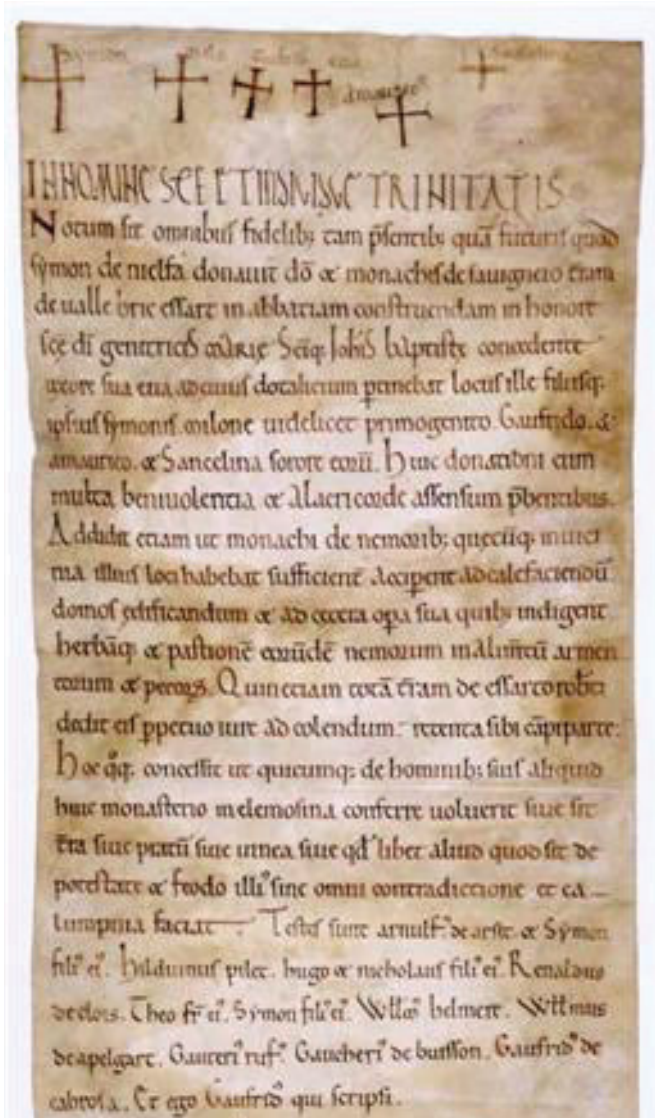 Symon milo Gaufrid eva Sancelina
amauric9
IN NOMINE SCE ET INDIVIDUE TRINITATIS
Notum sit omnibus fidelib; tam p̄sentib; quā futuris quod
symon de nielfa donauit dō & monachis de sauigneio t̄ram
de ualle bric essart in abbatiam construendam in honore
scę dī genitricis marie Sc̄iq; Ioh̄is baptistę concedente
uxore sua eua ad cuius dotalicium ptinebat locus ille filiisq;
ipsius symonis milone uidelicet primogenito. Gaufrido. &
amaurico. & Sancelina sorore eorū. Huic donationi cum
multa beniuolentia & alacri corde assensum p̄bentibus.
Addidit etiam ut monachi de nemorib; quecūq; in uici
nia illius loci habebat sufficient̄ acciperent ad calefaciendū
domos ędificandum & ad cetera opa sua quib; indigent
herbāq; & pastionē eorūdē nemorum in alim̄tū armen
torum & pecoris. Quin etiam totā t̄ram de essarto rob̄ti
dedit eis ppetuo iure ad colendum. retenta sibi cāpiparte.
Hoc q̊q; concessit ut quicumq; de hominib; suis aliquid
huic monasterio in elemosina conferre uoluerit siue sit
t̄ra siue pratū siue uinea siue qd̄ libet aliud quod sit de
potestate & feodo illi9 sine omni contradictione et ca
lumpnia faciat. Testes sunt arnulf9 de arsic & Symon
fili9 ei9. hilduinus pilet. hugo & nicholaus fili9 ei9. Renaldus
de clois. Theo fr̄ ei9. Symon fili9 ei9. Wll̄s helmert. Wll̄mus
de apelgart. Gauteri9 ruf9. Gaucheri9 de buisson. Gaufrid9 de
cabrosa. Et ego Gaufrid9 qui scripsi.